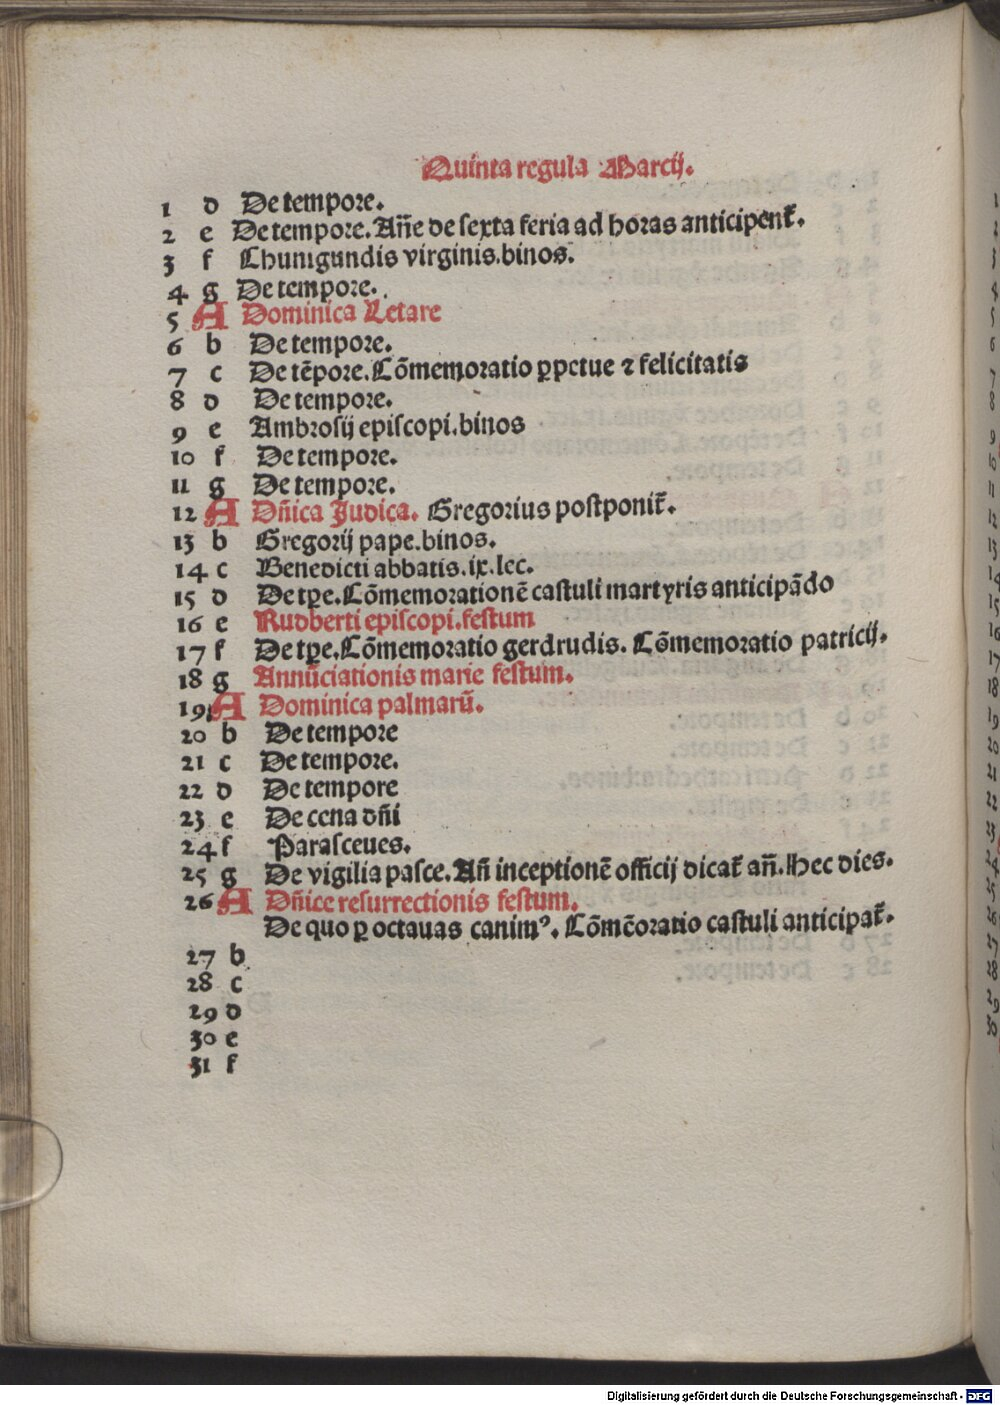 Quinta regula Marcij.
1 d De tempore.
2 e De tempore. An̄e de sexta feria ad horas anticipent̄.
3 f Chunigundis virginis. binos.
4 g De tempore.
5 A Dominica Letare
6 b De tempore.
7 c De tēpore. Cōmemoratio ꝑpetue ⁊ felicitatis
8 d De tempore.
9 e Ambrosij episcopi. binos
10 f De tempore.
11 g De tempore.
12 A Dn̄ica Judica. Gregorius postponit̄.
13 b Gregorij pape. binos.
14 c Benedicti abbatis. ix. lec.
15 d De tꝑe. Cōmemorationē castuli martyris anticipādo
16 e Rudberti episcopi. festum
17 f De tꝑe. Cōmemoratio gerdrudis. Cōmemoratio patricij.
18 g Annūciationis marie festum.
19 A Dominica palmarū.
20 b De tempore
21 c De tempore.
22 d De tempore
23 e De cena dn̄i
24 f Parasceues.
25 g De vigilia pasce. An̄ inceptionē officij dicat̄ an̄. Hec dies.
26 A Dn̄ice resurrectionis festum.
De quo ꝑ octauas canimꝰ. Cōmēoratio castuli anticipat̄.
27 b
28 c
29 d
30 e
31 f
Digitalisierung gefördert durch die Deutsche Forschungsgemeinschaft - DFG